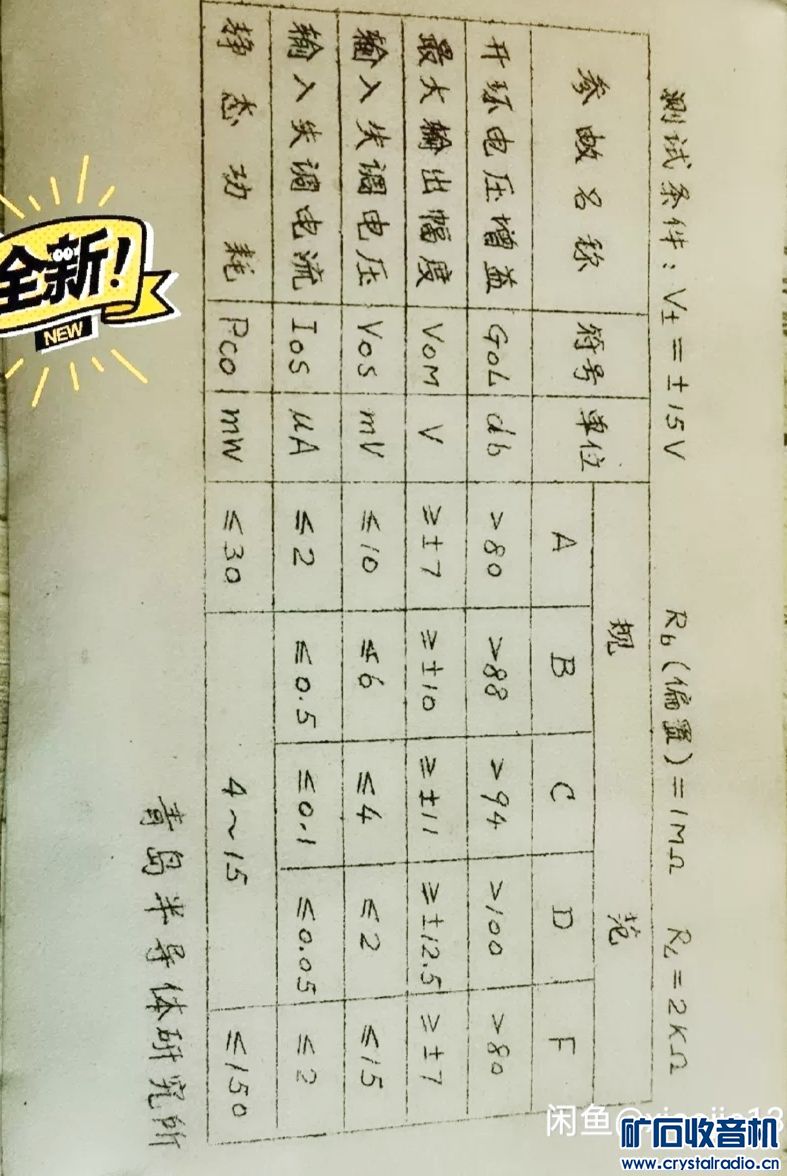 测试条件：V± = ±15V Rb(偏置)=1MΩ RL=2KΩ
参数名称 符号 单位 规范
A B C D F
开环电压增益 GOL db >80 >88 >94 >100 >80
最大输出幅度 VOM V ≥±7 ≥±10 ≥±11 ≥±12.5 ≥±7
输入失调电压 VOS mV ≤10 ≤6 ≤4 ≤2 ≤15
输入失调电流 IOS μA ≤2 ≤0.5 ≤0.1 ≤0.05 ≤2
静态功耗 PCO mW ≤30 4～15 ≤150
青岛半导体研究所
全新!
NEW
矿石收音机
www.crystalradio.cn